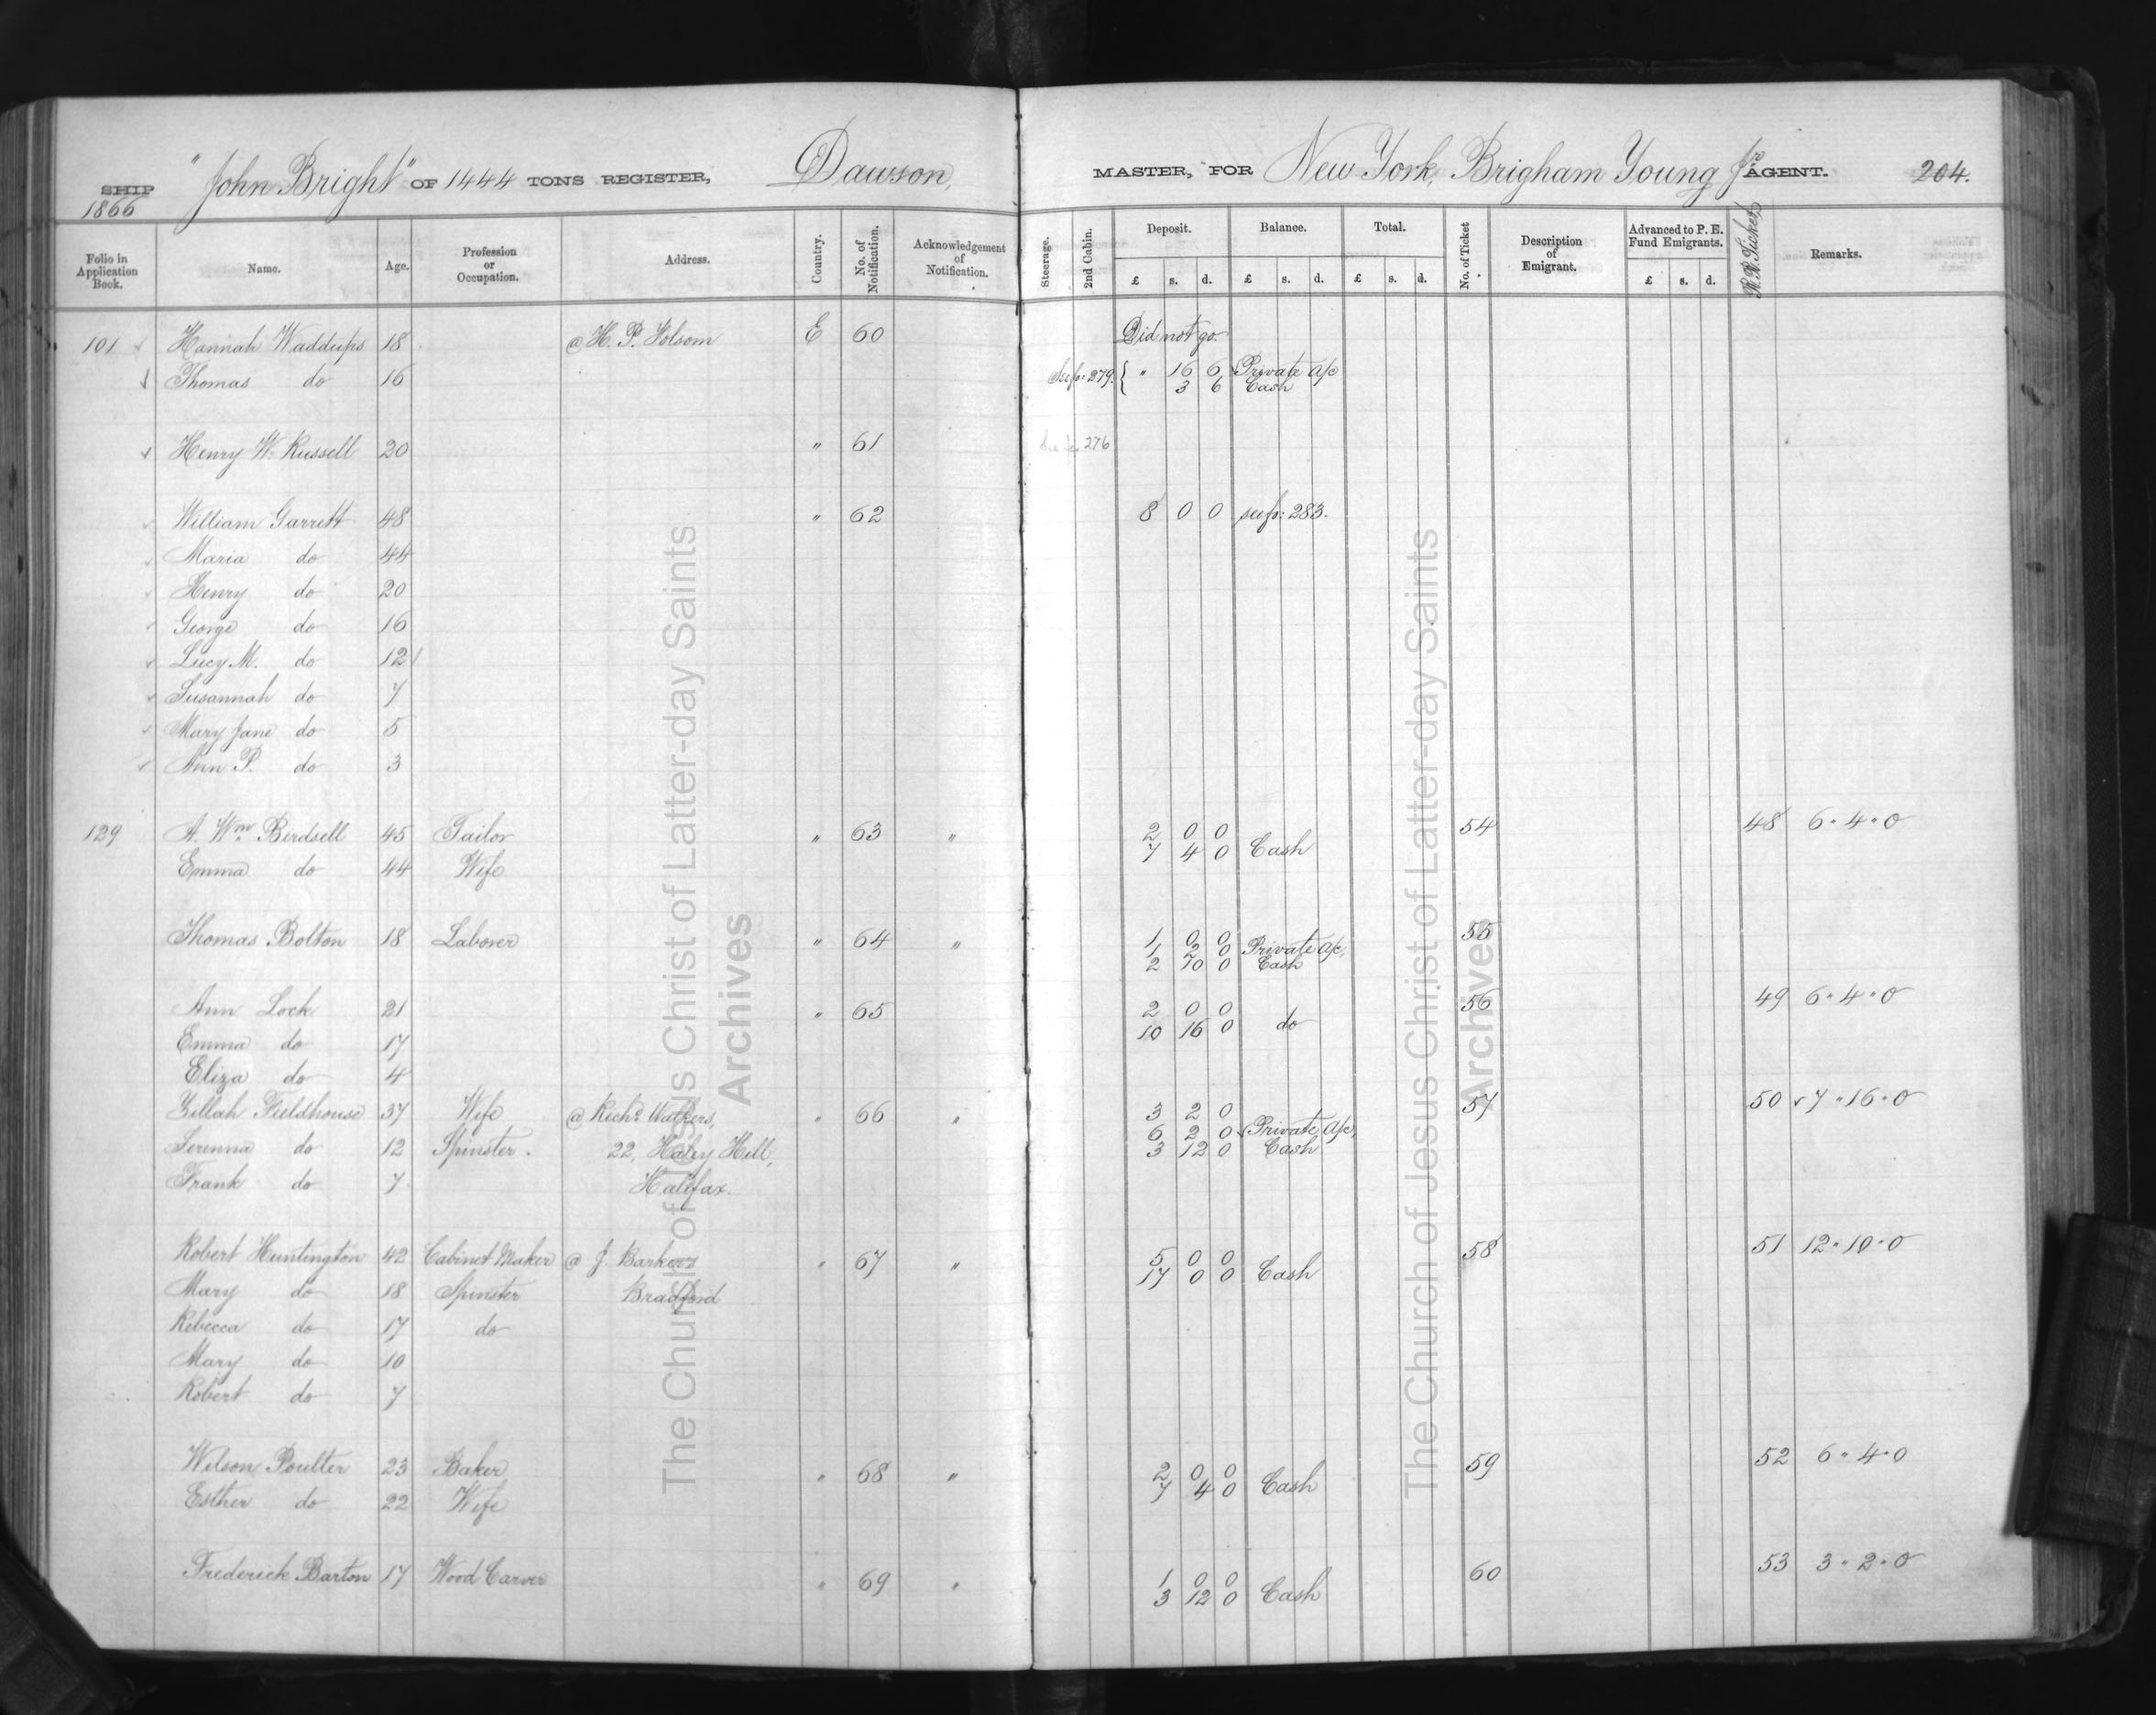 SHIP "John Bright" OF 1444 TONS REGISTER, Dawson, MASTER, FOR New York, Brigham Young Jr. AGENT. 204.
1866
Folio in Application Book. Name. Age. Profession or Occupation. Address. Country. No. of Notification. Acknowledgement of Notification. Steerage. 2nd Cabin. Deposit. Balance. Total. No. of Ticket Description of Emigrant. Advanced to P. E. Fund Emigrants. R.R. Tickets Remarks.
£ s. d. £ s. d. £ s. d. £ s. d.
101 Hannah Waddups 18 @ H. P. Folsom E 60 Did not go
Thomas do 16 See fo: 279. { " 16 6 Private a/c
3 6 Cash
Henry W. Russell 20 " 61 See fo. 276
William Garrett 48 " 62 8 0 0 see fo: 283.
Maria do 44
Henry do 20
George do 16
Lucy M. do 12
Susannah do 7
Mary Jane do 5
Ann P. do 3
129 A. Wm. Birdsell 45 Tailor " 63 " 2 0 0 54 48 6 " 4 " 0
7 4 0 Cash
Emma do 44 Wife
Thomas Bolton 18 Laborer " 64 " 1 0 0 55
1 2 0 Private a/c,
2 10 0 Cash
Ann Lock 21 " 65 2 0 0 56 49 6 " 4 " 0
10 16 0 do
Emma do 17
Eliza do 4
Zillah Fieldhouse 37 Wife @ Richd. Walkers, " 66 " 3 2 0 57 50 7 " 16 " 0
6 2 0 Private a/c,
Serenna do 12 Spinster. 22, Haley Hill, 3 12 0 Cash
Frank do 7 Halifax.
Robert Huntington 42 Cabinet Maker @ J. Barkers " 67 " 5 0 0 58 51 12 " 10 " 0
17 0 0 Cash
Mary do 18 Spinster Bradford
Rebecca do 17 do
Mary do 10
Robert do 7
Wilson Poulter 23 Baker " 68 " 2 0 0 59 52 6 " 4 " 0
7 4 0 Cash
Esther do 22 Wife
Frederick Barton 17 Wood Carver " 69 " 1 0 0 60 53 3 " 2 " 0
3 12 0 Cash
The Church of Jesus Christ of Latter-day Saints
Archives
The Church of Jesus Christ of Latter-day Saints
Archives